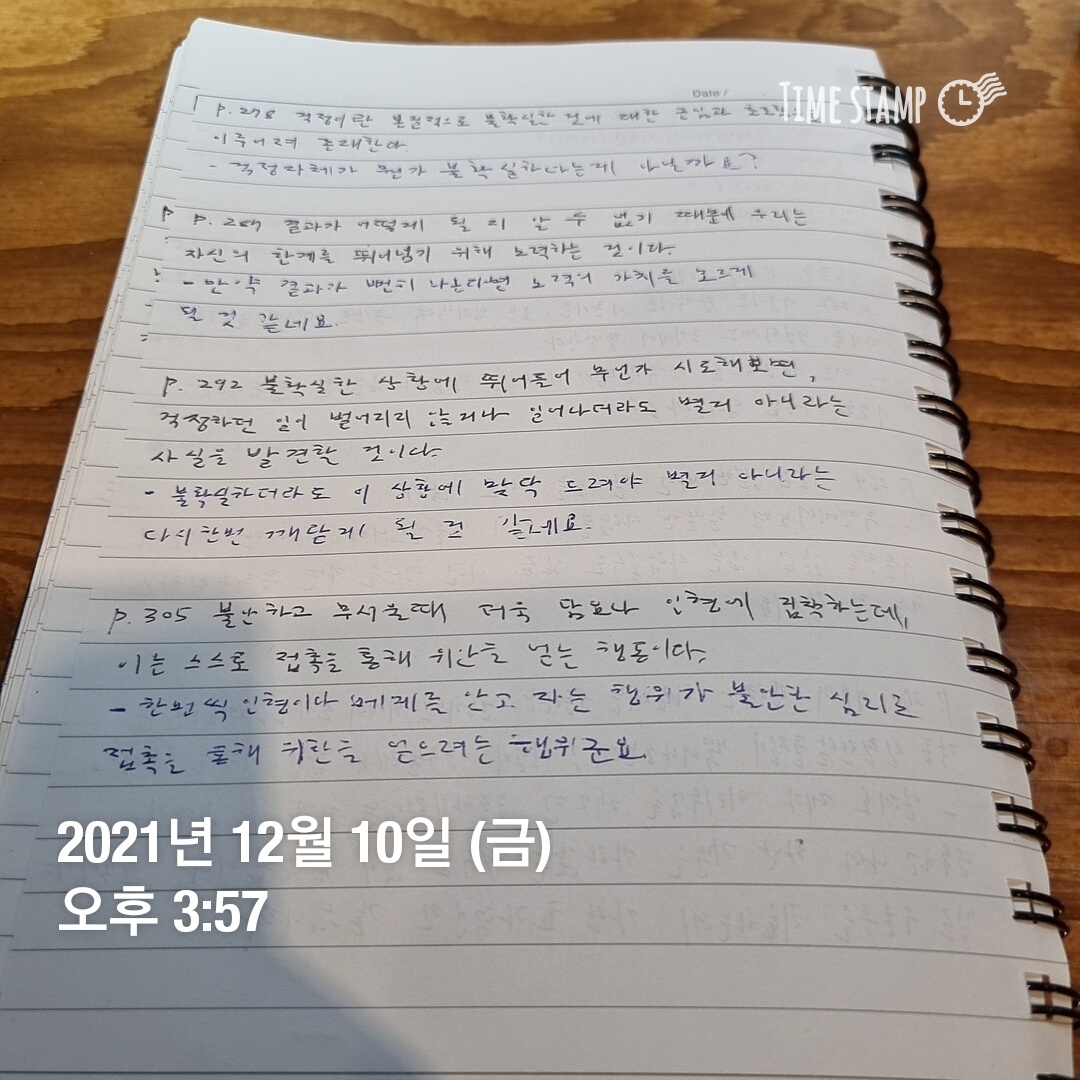 Date /
TIME STAMP
p.278 걱정이란 본질적으로 불확실한 것에 대한 근심과 초조함으로
이루어져 존재한다
- 걱정자체가 뭔가 불확실하다는게 아닐까요?
p. 287 결과가 어떻게 될 지 알 수 없기 때문에 우리는
자신의 한계를 뛰어넘기 위해 노력하는 것이다.
- 만약 결과가 뻔히 나온다면 노력의 가치를 모르게
될 것 같네요.
p. 292 불확실한 상황에 뛰어들어 무언가 시도해보면,
걱정하던 일이 벌어지지 않거나 일어나더라도 별거 아니라는
사실을 발견할 것이다.
- 불확실하더라도 이 상황에 맞닥 드려야 별거 아니라는
다시한번 깨닫게 될 것 같네요.
p. 305 불안하고 무서울때 더욱 담요나 인형에 집착하는데,
이는 스스로 접촉을 통해 위안을 얻는 행동이다.
- 한번씩 인형이나 베개를 안고 자는 행위가 불안한 심리로
접촉을 통해 위안을 얻으려는 행위군요.
2021년 12월 10일 (금)
오후 3:57